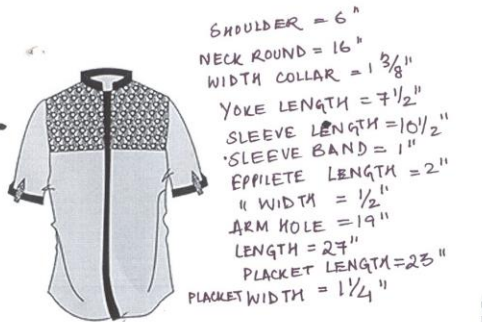 SHOULDER = 6"
NECK ROUND = 16"
WIDTH COLLAR = 1 3/8"
YOKE LENGTH = 7 1/2"
SLEEVE LENGTH = 10 1/2"
SLEEVE BAND = 1"
EPPILETE LENGTH = 2"
" WIDTH = 1/2"
ARM HOLE = 19"
LENGTH = 27"
PLACKET LENGTH = 23"
PLACKET WIDTH = 1 1/4"